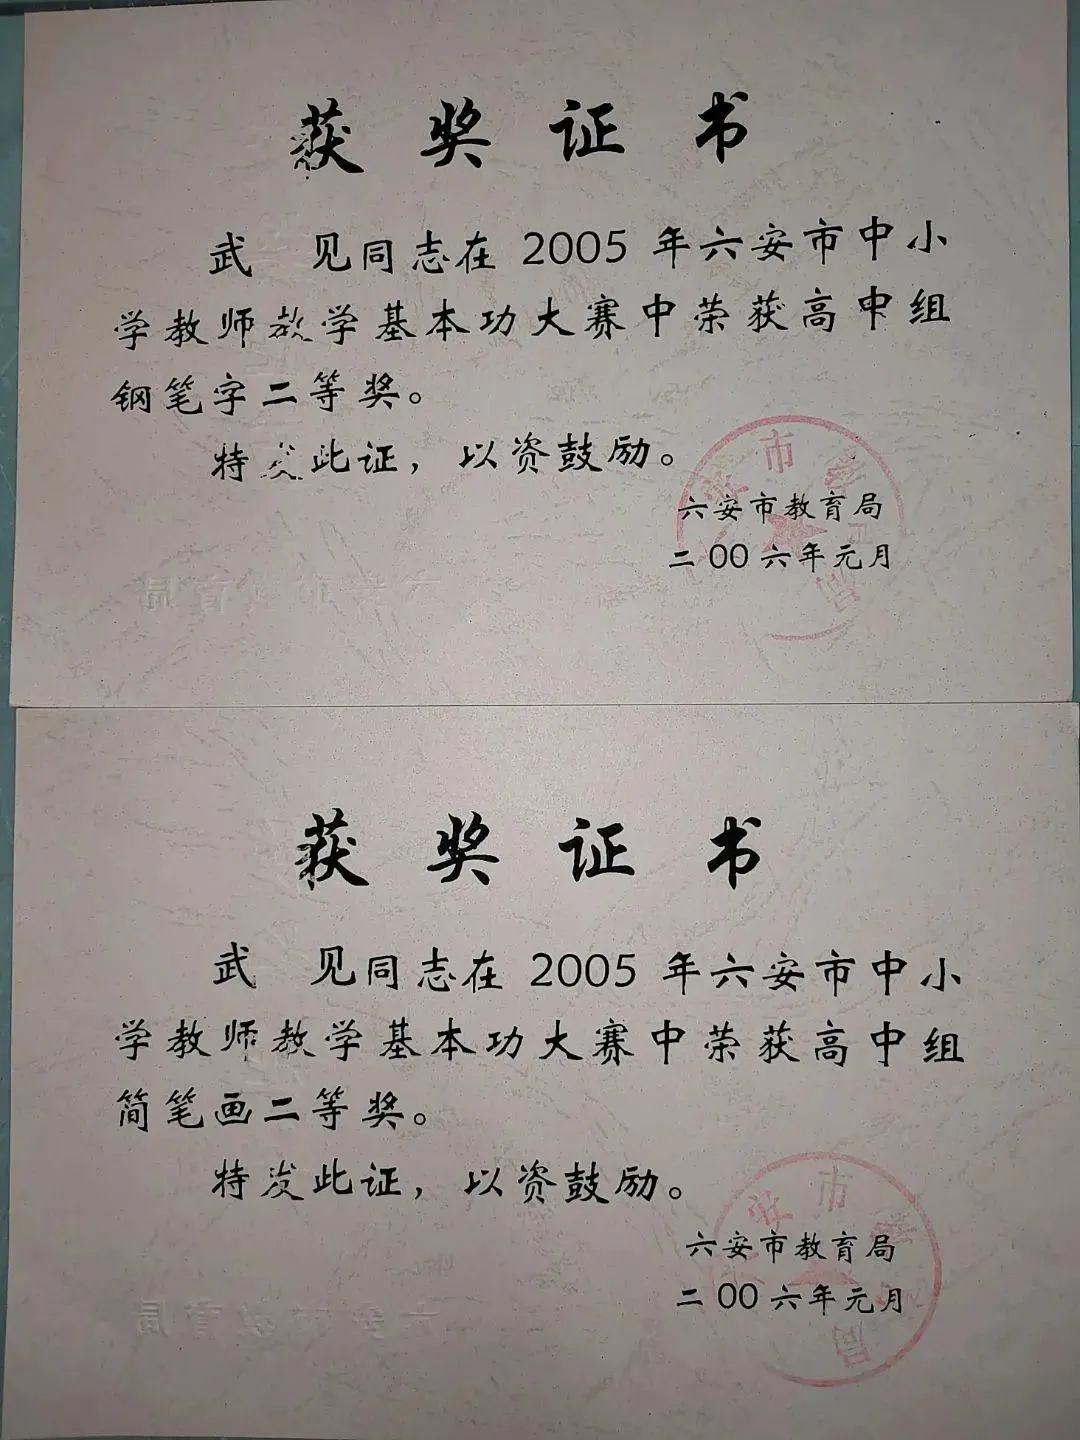 获奖证书
武 见同志在 2005 年六安市中小
学教师教学基本功大赛中荣获高中组
钢笔字二等奖。
特发此证，以资鼓励。
六安市教育局
二00六年元月
获奖证书
武 见同志在 2005 年六安市中小
学教师教学基本功大赛中荣获高中组
简笔画二等奖。
特发此证，以资鼓励。
六安市教育局
二00六年元月